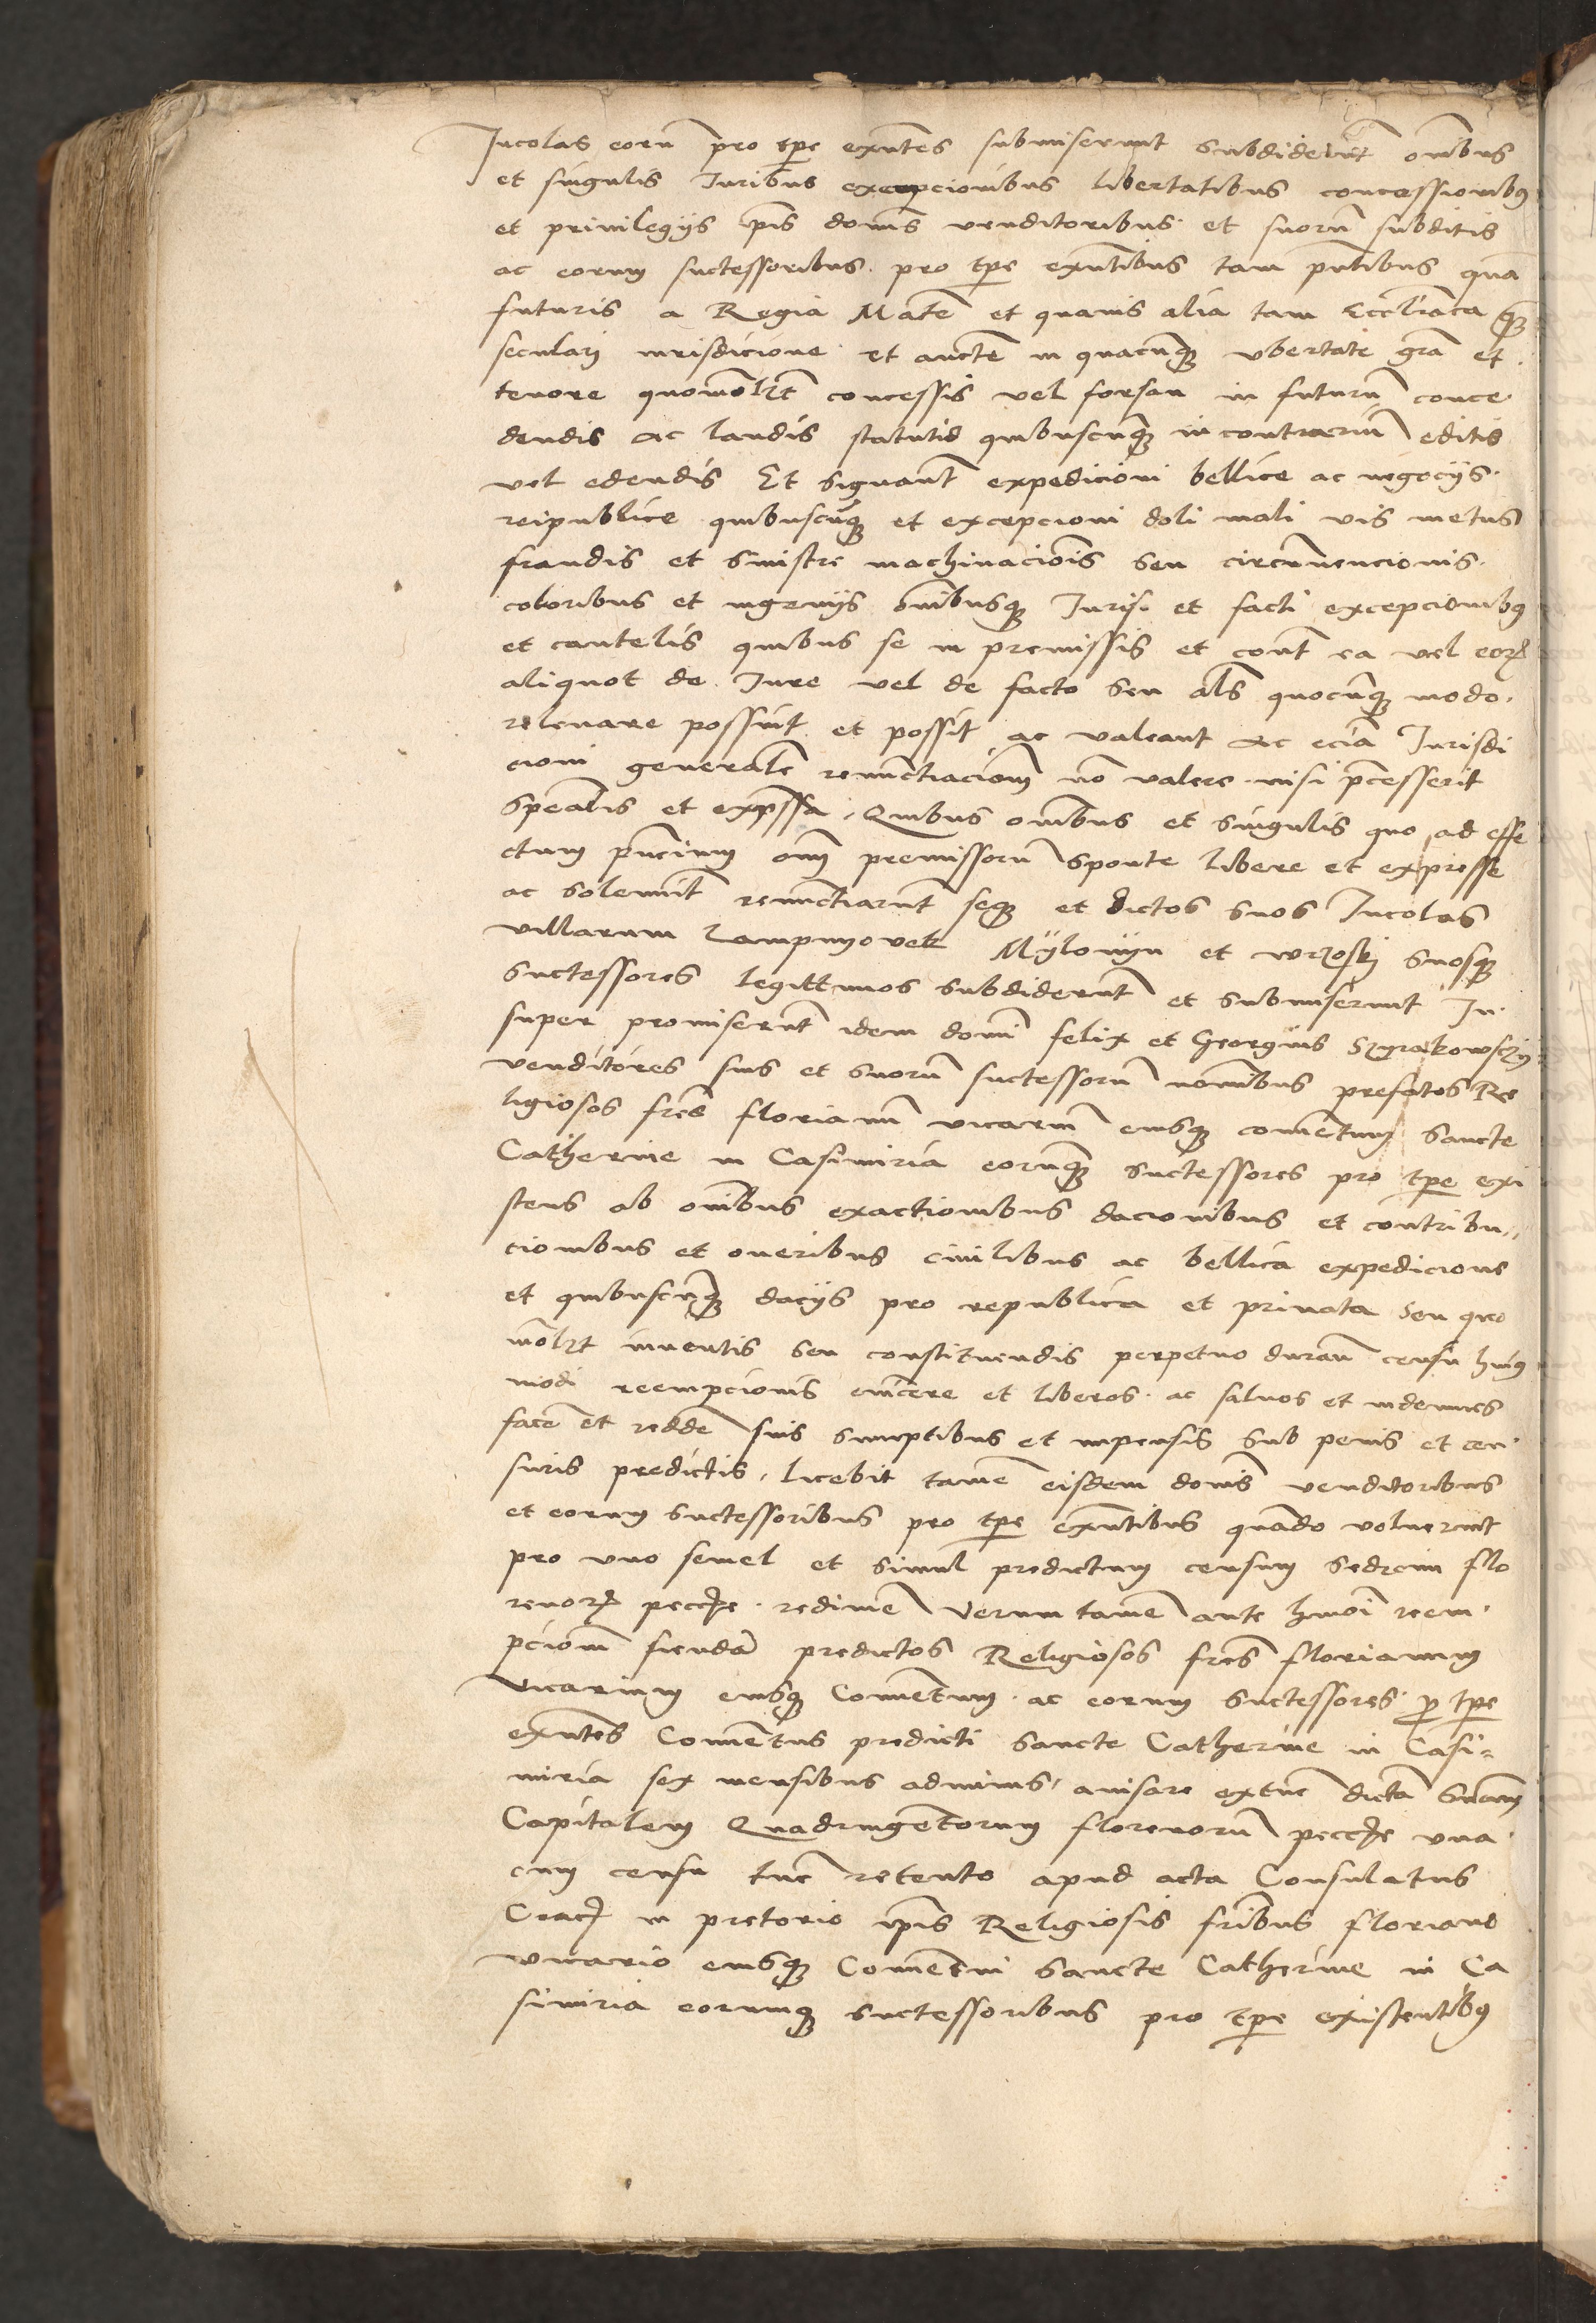 Incolas eorū pro tpe exn̄tes submiserunt subdiderūt om̄ibus
et singulis Iuribus exempcionibus libertatibus concessionibꝯ
et priuilegijs ip̄is domīs venditoribus et suorū subditis
ac eorum suctessoribus pro tpe exn̄tibus tam pn̄tibus quā
futuris a Regia Mate et quauis alia tam Eccl̄iāca qꝫ
seculari iurisdicione et aucte in quacūqꝫ vbertate grā et
tenore quomōlꝫt concessis vel forsan in futurū conce
dendis ac laudis statutis quibuscūqꝫ in contrariū editis
vel edendis Et signant̄ expedicioni bellice ac negocijs
reipublice quibuscūqꝫ et excepcioni doli mali vis metus
fraudis et sinistre machinaciōis seu circūuencionis
coloribus et ingenijs om̄ibusqꝫ Iuris et facti excepcionibꝯ
et cautelis quibus se in premissis et cont̄ ea vel eorꝝ
aliquot de Iure vel de facto seu al̄s quocūqꝫ modo
releuare possint et possit ac valeant ac eciā Iurisdi
cioni generalē renuncciaciōem nō valere nisi p̄cesserit
spēalis et exp̄ssa, Quibus om̄ibus et singulis quo ad effe
ctum om̄ premissorū sponte libere et expresse
ac solemnit̄ renunctiarūt seqꝫ et dictos suos Incolas
villarum Mÿlowÿn et wrzosÿ suosqꝫ
suctessores legittimos subdiderūt et submiserunt In
super promiserūt idem domī felix et Georgius
venditores suis et suorū suctessorū nom̄ibus prefatos Re
ligiosos fres florianū vicariū eiusqꝫ conuētum sancte
Catherine in Casimiria eorūqꝫ suctessores pro tpe exi
stens ab om̄ibus exactionibus dacionibus et contribu,,
cionibus et oneribus ciuilibus ac bellica expedicione
et quibuscūqꝫ dacijs pro republica et priuata seu quo
mōlꝫt inuentis seu constituendis perpetuo durān censu huiꝯ
modi reempcionis euīcere et liberos ac saluos et indemnes
facē et reddē suis sumptibus et impensis sub penis et cen
suris predictis, licebit tamē eisdem domīs venditoribus
et eorum suctessoribus pro tpe exn̄tibus quādo voluerint
pro vno semel et simul predictum censum sedecim flo
renorꝝ peccꝭe redimē Verum tamē ante hmōi reem
pciom̄ fiendā predictos Religiosos fres florianum
vicarium eiusqꝫ Conuētum ac eorum suctessores ꝓ tpe
exn̄tes Conuētus predicti sancte Catherine in Casi=
miria sex mensibus adminus, auisare extūc dictā sum̄am
Capitalem Quadringētorum florenorū peccꝭe vna
cum censu tūc retento apud acta Consulatus
Cracꝭ in pretorio ip̄is Religiosis fribus floriano
vicario eiusqꝫ Conuētui sancte Catherine in Ca
simiria eorumqꝫ suctessoribus pro tpe existentibꝯ